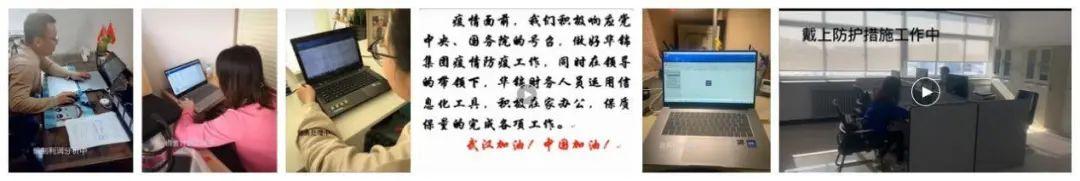 疫情面前，我们积极响应党
中央、国务院的号召，做好华锦
集团疫情防疫工作，同时在领导
的带领下，华锦财务人员运用信
息化工具，积极在家办公，保质
保量的完成各项工作。
武汉加油！中国加油！
戴上防护措施工作中